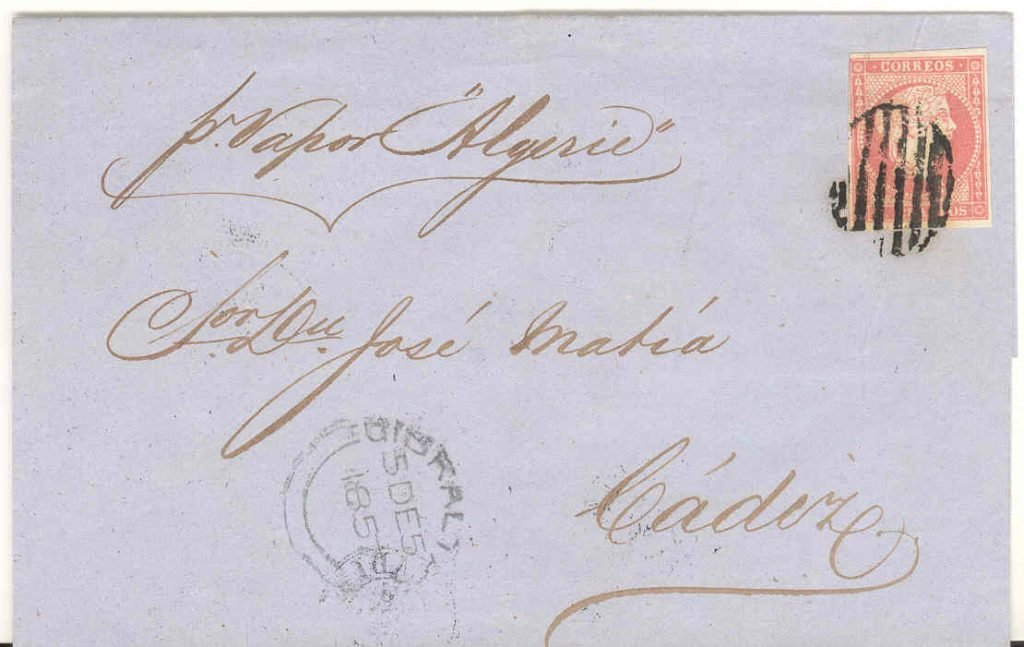 CORREOS
pr. Vapor "Algerie"
Sor. Dn. José Matiá
GIBRALT
5 DE 5
185
Cádiz